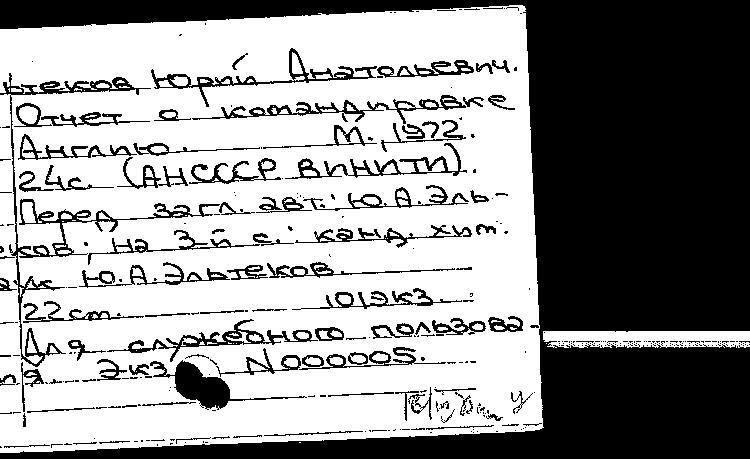 ьтеков, Юрий Анатольевич.
Отчет о командировке
Англию. М., 1972.
24с. (АНСССР ВИНИТИ).
Перед загл. авт.: Ю.А.Эль-
еков; на 3-й с.: канд. хим.
аук Ю.А.Эльтеков.
22см. 101экз.
Для служебного пользова-
ия. Экз N000005.